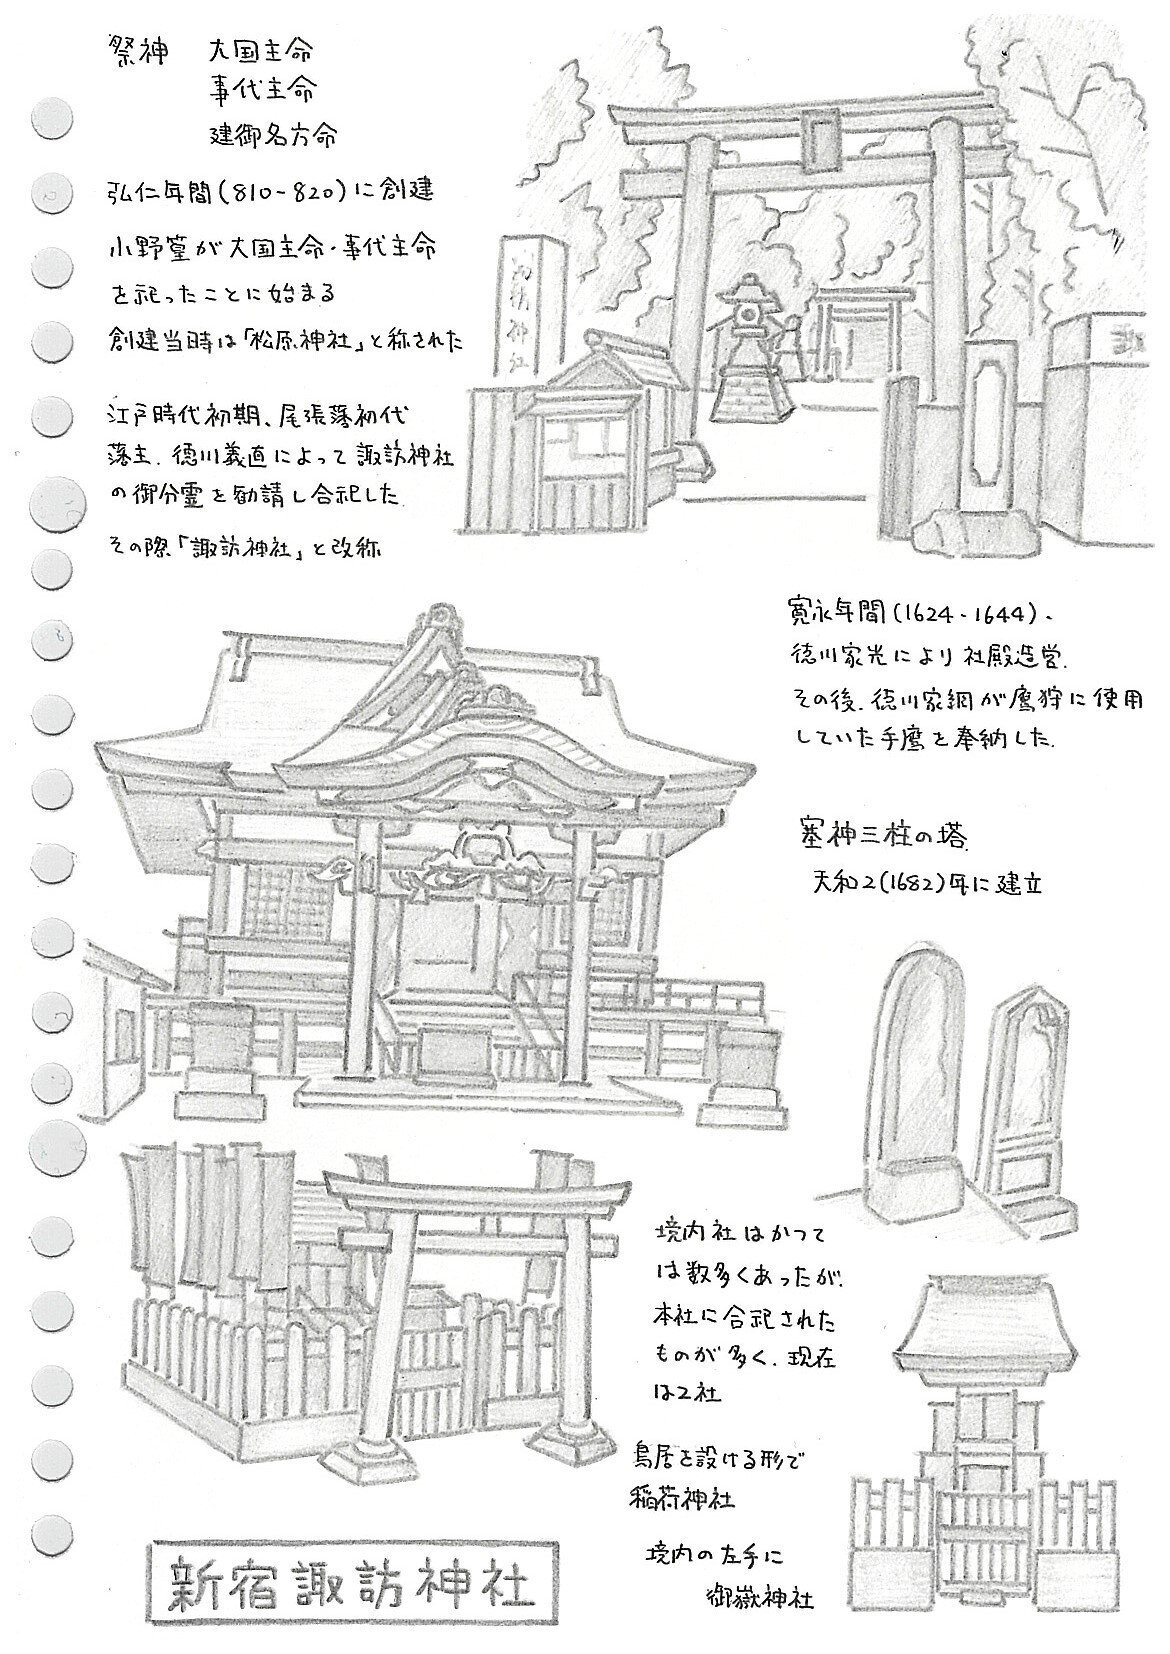 祭神 大国主命
事代主命
建御名方命
弘仁年間(810-820)に創建
小野篁が大国主命・事代主命
を祀ったことに始まる
創建当時は「松原神社」と称された
江戸時代初期、尾張落初代
落主、徳川義直によって諏訪神社
の御分霊を勧請し合祀した
その際「諏訪神社」と改称
諏訪神社
寛永年間(1624-1644)、
徳川家光により社殿造営.
その後、徳川家綱が鷹狩に使用
していた手鷹を奉納した.
塞神三柱の塔
天和2(1682)年に建立
境内社はかつて
は数多くあったが、
本社に合祀された
ものが多く、現在
は2社
鳥居を設ける形で
稲荷神社
境内の左手に
御嶽神社
新宿諏訪神社